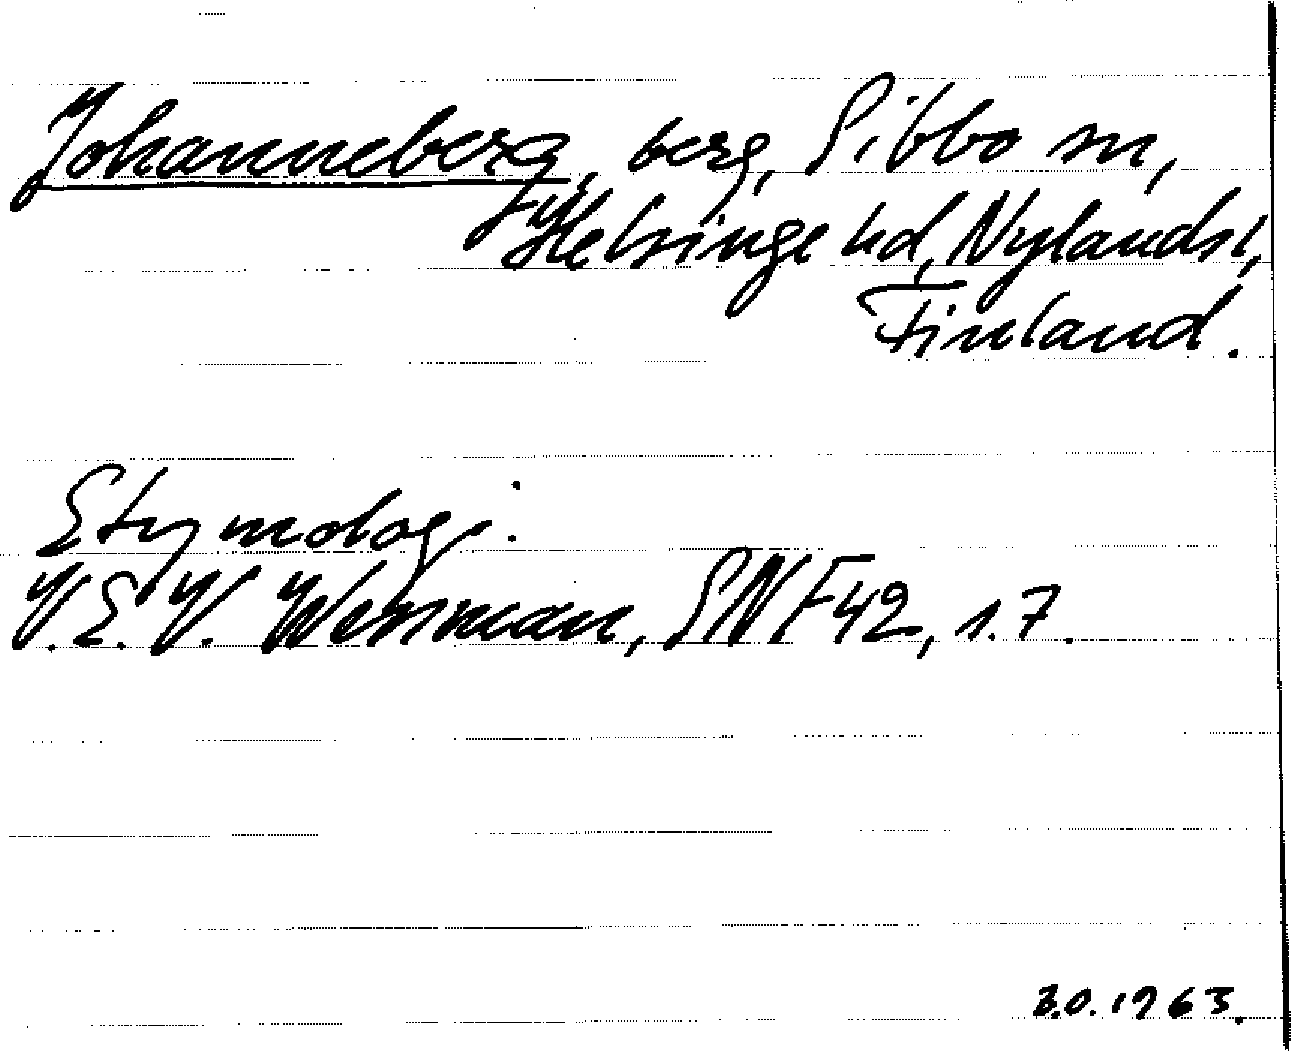 Johanneberg, berg, Sibbo sn,
Helsinge hd, Nylands l,
Finland.
Etymologi:
V.E.V. Wessman, SNF 42, s. 7.
B.O. 1963.